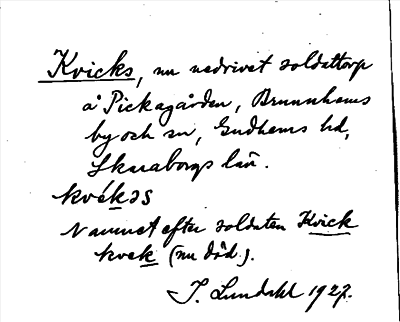 Kvicks, nu nedrivet soldattorp
å Pickagården, Brunnhems
by och sn, Gudhems hd,
Skaraborgs län.
kvékəs
Namnet efter soldaten Kvick
kvek (nu död.).
J. Lundahl 1927.